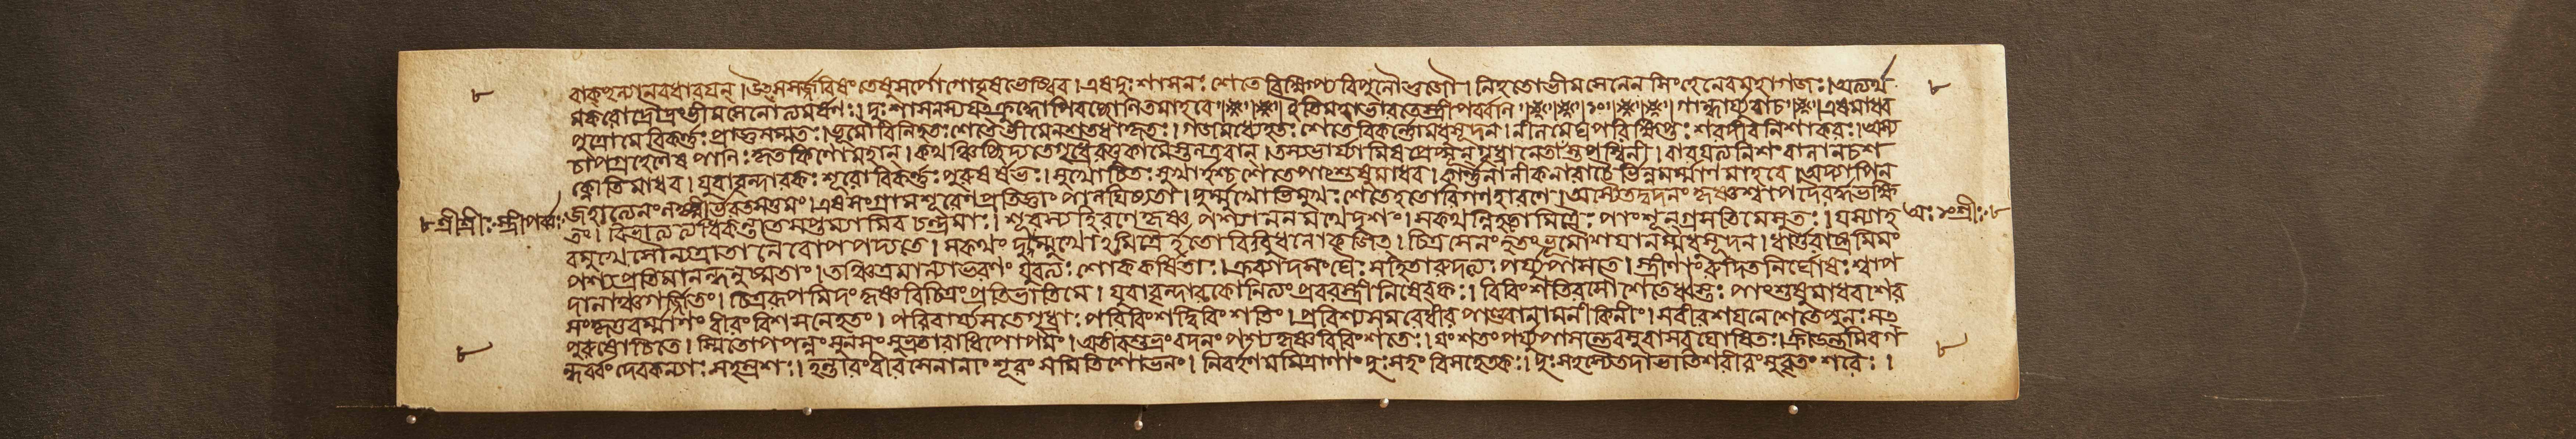 ৮
বাক্শল্যানবধারয়ন্। উৎসসর্জ্জ বিষং তেষু সর্পো গোবৃষভেষ্বিব। এষ দুঃশাসনঃ শেতে বিক্ষিপ্য বিপুলৌ ভুজৌ। নিহতো ভীমসেনেন সিংহেনেব মহাগজঃ। অত্যর্থ ৮
মকরোদ্রৌদ্রং ভীমসেনোত্যমর্ষণঃ। দুঃশাসনস্য যৎ ক্রুদ্ধোপিবচ্ছোনিতমাহবে॥ ইতি মহাভারতে স্ত্রীপর্ব্বনি॥ গান্ধার্য্যুবাচ॥ এষ মাধব
পুত্রো মে বিকর্ণ্ণঃ প্রাজ্ঞসম্মতঃ। ভূমৌ বিনিহতঃ শেতে ভীমেন শতধা কৃতঃ। গজমধ্যে হতঃ শেতে বিকর্ণ্ণো মধুসূদন। নীলমেঘপরিক্ষিপ্তঃ শরদীব নিশাকরঃ। অস্য
চাপগ্রহেণৈষ পানিঃ কৃতকিণো মহান্। কথঞ্চিচ্ছিদ্যতে গৃধ্রৈরত্তুকামৈস্তলত্রবান্। তস্য ভার্য্যামিষপ্রেপ্সূন্ গৃধ্রানেতাংস্তপস্বিনী। বারয়ত্যনিশং বালা ন চ শ
ক্নোতি মাধব। যুবা বৃন্দারকঃ শূরো বিকর্ণ্ণঃ পুরুষর্ষভঃ। সুখোচিতঃ সুখার্হশ্চ শেতে পাংশুষু মাধব। কর্ণ্ণিনালীকনারাচৈর্ভিন্নমর্ম্মাণমাহবে। অদ্যাপি ন
৮ শ্রীশ্রীঃ স্ত্রীপর্ব্বঃ জহাত্যেনং লক্ষ্মীর্ভরতসত্তমং। এষ সংগ্রামশূরেণ প্রতিজ্ঞাং পালয়িষ্যতা। দুর্ম্মুখোভিমুখঃ শেতে হতোরিগণহা রণে। অস্যৈতদ্বদনং কৃষ্ণ শ্বাপদৈরর্দ্ধভক্ষি অঃ শ্রীঃ ৮
তং। বিভাত্যভ্যধিকং তাত সপ্তম্যামিব চন্দ্রমাঃ। শূরস্য হি রণে কৃষ্ণ পশ্যাননমথেদৃশং। স কথন্নিহতোমিত্রৈঃ পাংশূন্ গ্রসতি মে সুতঃ। যস্যাহ
বমুখে সৌম্য স্থাতা নৈবোপপদ্যতে। স কথং দুর্ম্মুখোঽমিত্রৈর্হতো বিবুধলোকজিৎ। চিত্রসেনং হতং ভূমৌ শয়ানম্মধুসূদন। ধার্ত্তরাষ্ট্রমিমং
পশ্য প্রতিমানন্ধনুষ্মতাং। তঞ্চিত্রমাল্যাভরণং যুবত্যঃ শোককর্ষিতাঃ। ক্রব্যাদসংঘৈঃ সহিতা রুদত্যঃ পর্য্যুপাসতে। স্ত্রীণাং রুদিতনির্ঘোষঃ শ্বাপ
দানাঞ্চ গর্জ্জিতং। চিত্ররূপমিদং কৃষ্ণ বিচিত্রং প্রতিভাতি মে। যুবা বৃন্দারকো নিত্যং প্রবরস্ত্রীনিষেবকঃ। বিবিংশতিরসৌ শেতে ধ্বস্তঃ পাংশুষু মাধব। শর
সংকৃত্তবর্ম্মাণং বীরং বিশসনে হতং। পরিবার্য্যাসতে গৃধ্রাঃ পরিবিংশদ্বিবিংশতিং। প্রবিশ্য সমরে বীর পাণ্ডবানামনীকিনীং। স বীরশয়নে শেতে পুনঃ সৎ
পুরুষোচিতে। স্মিতোপপন্নং সুনসং সুভ্রু তারাধিপোপমং। অতীব শুভ্রং বদনং পশ্য কৃষ্ণ বিবিংশতেঃ। যং শতং পর্য্যুপাসন্তে বসুং বাসবযোষিতঃ। ক্রীডন্তমিব গ
ন্ধর্ব্বং দেবকন্যাঃ সহস্রশঃ। হন্তারং বীরসেনানাং শূরং সমিতিশোভনং। নিবর্হণমমিত্রাণাং দুঃসহং বিসহেতকঃ। দুঃসহস্যৈতদাভাতি শরীরং সুবৃতং শরৈঃ।
৮
৮